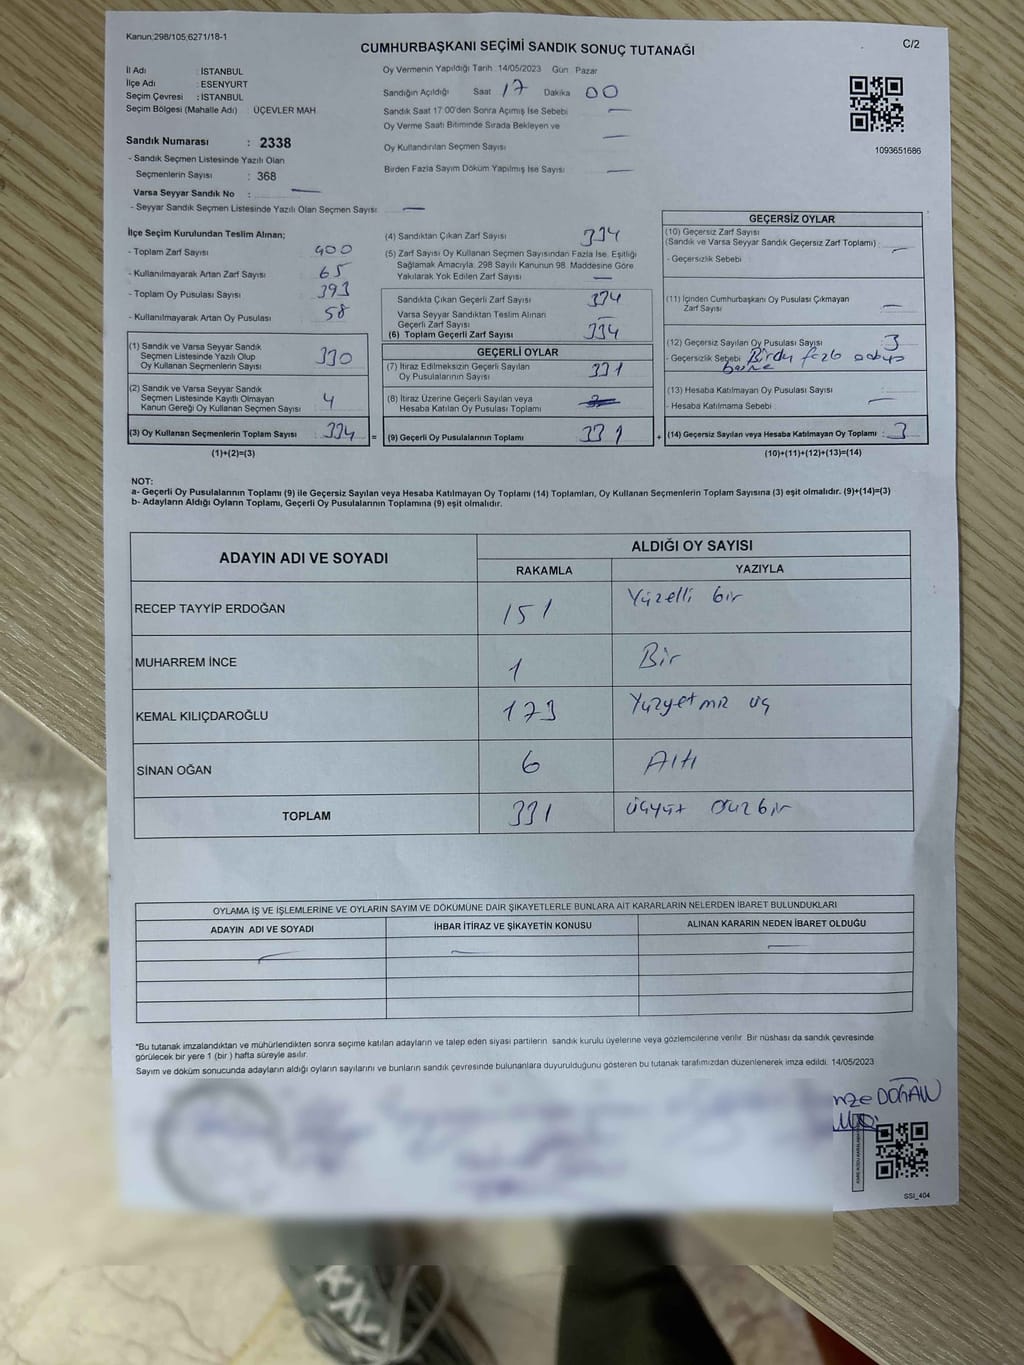 Kanun:298/105;6271/18-1
CUMHURBAŞKANI SEÇİMİ SANDIK SONUÇ TUTANAĞI
C/2
İl Adı : İSTANBUL
İlçe Adı : ESENYURT
Seçim Çevresi : İSTANBUL
Seçim Bölgesi (Mahalle Adı) : ÜÇEVLER MAH.
Sandık Numarası : 2338
- Sandık Seçmen Listesinde Yazılı Olan
Seçmenlerin Sayısı : 368
Varsa Seyyar Sandık No : —
- Seyyar Sandık Seçmen Listesinde Yazılı Olan Seçmen Sayısı: —
Oy Vermenin Yapıldığı Tarih :14/05/2023 Gün : Pazar
Sandığın Açıldığı Saat 17 Dakika 00
Sandık Saat 17:00'den Sonra Açılmış İse Sebebi —
Oy Verme Saati Bitiminde Sırada Bekleyen ve
Oy Kullandırılan Seçmen Sayısı —
Birden Fazla Sayım Döküm Yapılmış İse Sayısı —
1093651686
İlçe Seçim Kurulundan Teslim Alınan;
- Toplam Zarf Sayısı : 400
- Kullanılmayarak Artan Zarf Sayısı : 65
- Toplam Oy Pusulası Sayısı : 393
- Kullanılmayarak Artan Oy Pusulası : 58
(1) Sandık ve Varsa Seyyar Sandık
Seçmen Listesinde Yazılı Olup
Oy Kullanan Seçmenlerin Sayısı : 330
(2) Sandık ve Varsa Seyyar Sandık
Seçmen Listesinde Kayıtlı Olmayan
Kanun Gereği Oy Kullanan Seçmen Sayısı : 4
(3) Oy Kullanan Seçmenlerin Toplam Sayısı : 334 =
(1)+(2)=(3)
(4) Sandıktan Çıkan Zarf Sayısı 334
(5) Zarf Sayısı Oy Kullanan Seçmen Sayısından Fazla İse, Eşitliği
Sağlamak Amacıyla; 298 Sayılı Kanunun 98. Maddesine Göre
Yakılarak Yok Edilen Zarf Sayısı —
Sandıkta Çıkan Geçerli Zarf Sayısı 334
Varsa Seyyar Sandıktan Teslim Alınan
Geçerli Zarf Sayısı —
(6) Toplam Geçerli Zarf Sayısı 334
GEÇERLİ OYLAR
(7) İtiraz Edilmeksizin Geçerli Sayılan
Oy Pusulalarının Sayısı : 331
(8) İtiraz Üzerine Geçerli Sayılan veya
Hesaba Katılan Oy Pusulası Toplamı :
(9) Geçerli Oy Pusulalarının Toplamı : 331 +
GEÇERSİZ OYLAR
(10) Geçersiz Zarf Sayısı
(Sandık ve Varsa Seyyar Sandık Geçersiz Zarf Toplamı) : —
- Geçersizlik Sebebi :
(11) İçinden Cumhurbaşkanı Oy Pusulası Çıkmayan
Zarf Sayısı : —
(12) Geçersiz Sayılan Oy Pusulası Sayısı : 3
- Geçersizlik Sebebi : fazla
(13) Hesaba Katılmayan Oy Pusulası Sayısı :
- Hesaba Katılmama Sebebi : —
(14) Geçersiz Sayılan veya Hesaba Katılmayan Oy Toplamı : 3
(10)+(11)+(12)+(13)=(14)
NOT:
a- Geçerli Oy Pusulalarının Toplamı (9) ile Geçersiz Sayılan veya Hesaba Katılmayan Oy Toplamı (14) Toplamları, Oy Kullanan Seçmenlerin Toplam Sayısına (3) eşit olmalıdır. (9)+(14)=(3)
b- Adayların Aldığı Oyların Toplamı, Geçerli Oy Pusulalarının Toplamına (9) eşit olmalıdır.
ADAYIN ADI VE SOYADI
ALDIĞI OY SAYISI
RAKAMLA YAZIYLA
RECEP TAYYİP ERDOĞAN 151 Yüzelli bir
MUHARREM İNCE 1 Bir
KEMAL KILIÇDAROĞLU 173 Yüzyetmiz üç
SİNAN OĞAN 6 Altı
TOPLAM 331 üçyüz otuzbir
OYLAMA İŞ VE İŞLEMLERİNE VE OYLARIN SAYIM VE DÖKÜMÜNE DAİR ŞİKAYETLERLE BUNLARA AİT KARARLARIN NELERDEN İBARET BULUNDUKLARI
ADAYIN ADI VE SOYADI İHBAR İTİRAZ VE ŞİKAYETİN KONUSU ALINAN KARARIN NEDEN İBARET OLDUĞU
— — —
*Bu tutanak imzalandıktan ve mühürlendikten sonra seçime katılan adayların ve talep eden siyasi partilerin sandık kurulu üyelerine veya gözlemcilerine verilir. Bir nüshası da sandık çevresinde
görülecek bir yere 1 (bir ) hafta süreyle asılır.
Sayım ve döküm sonucunda adayların aldığı oyların sayılarını ve bunların sandık çevresinde bulunanlara duyurulduğunu gösteren bu tutanak tarafımızdan düzenlenerek imza edildi. 14/05/2023
DOĞAN
SSI_404